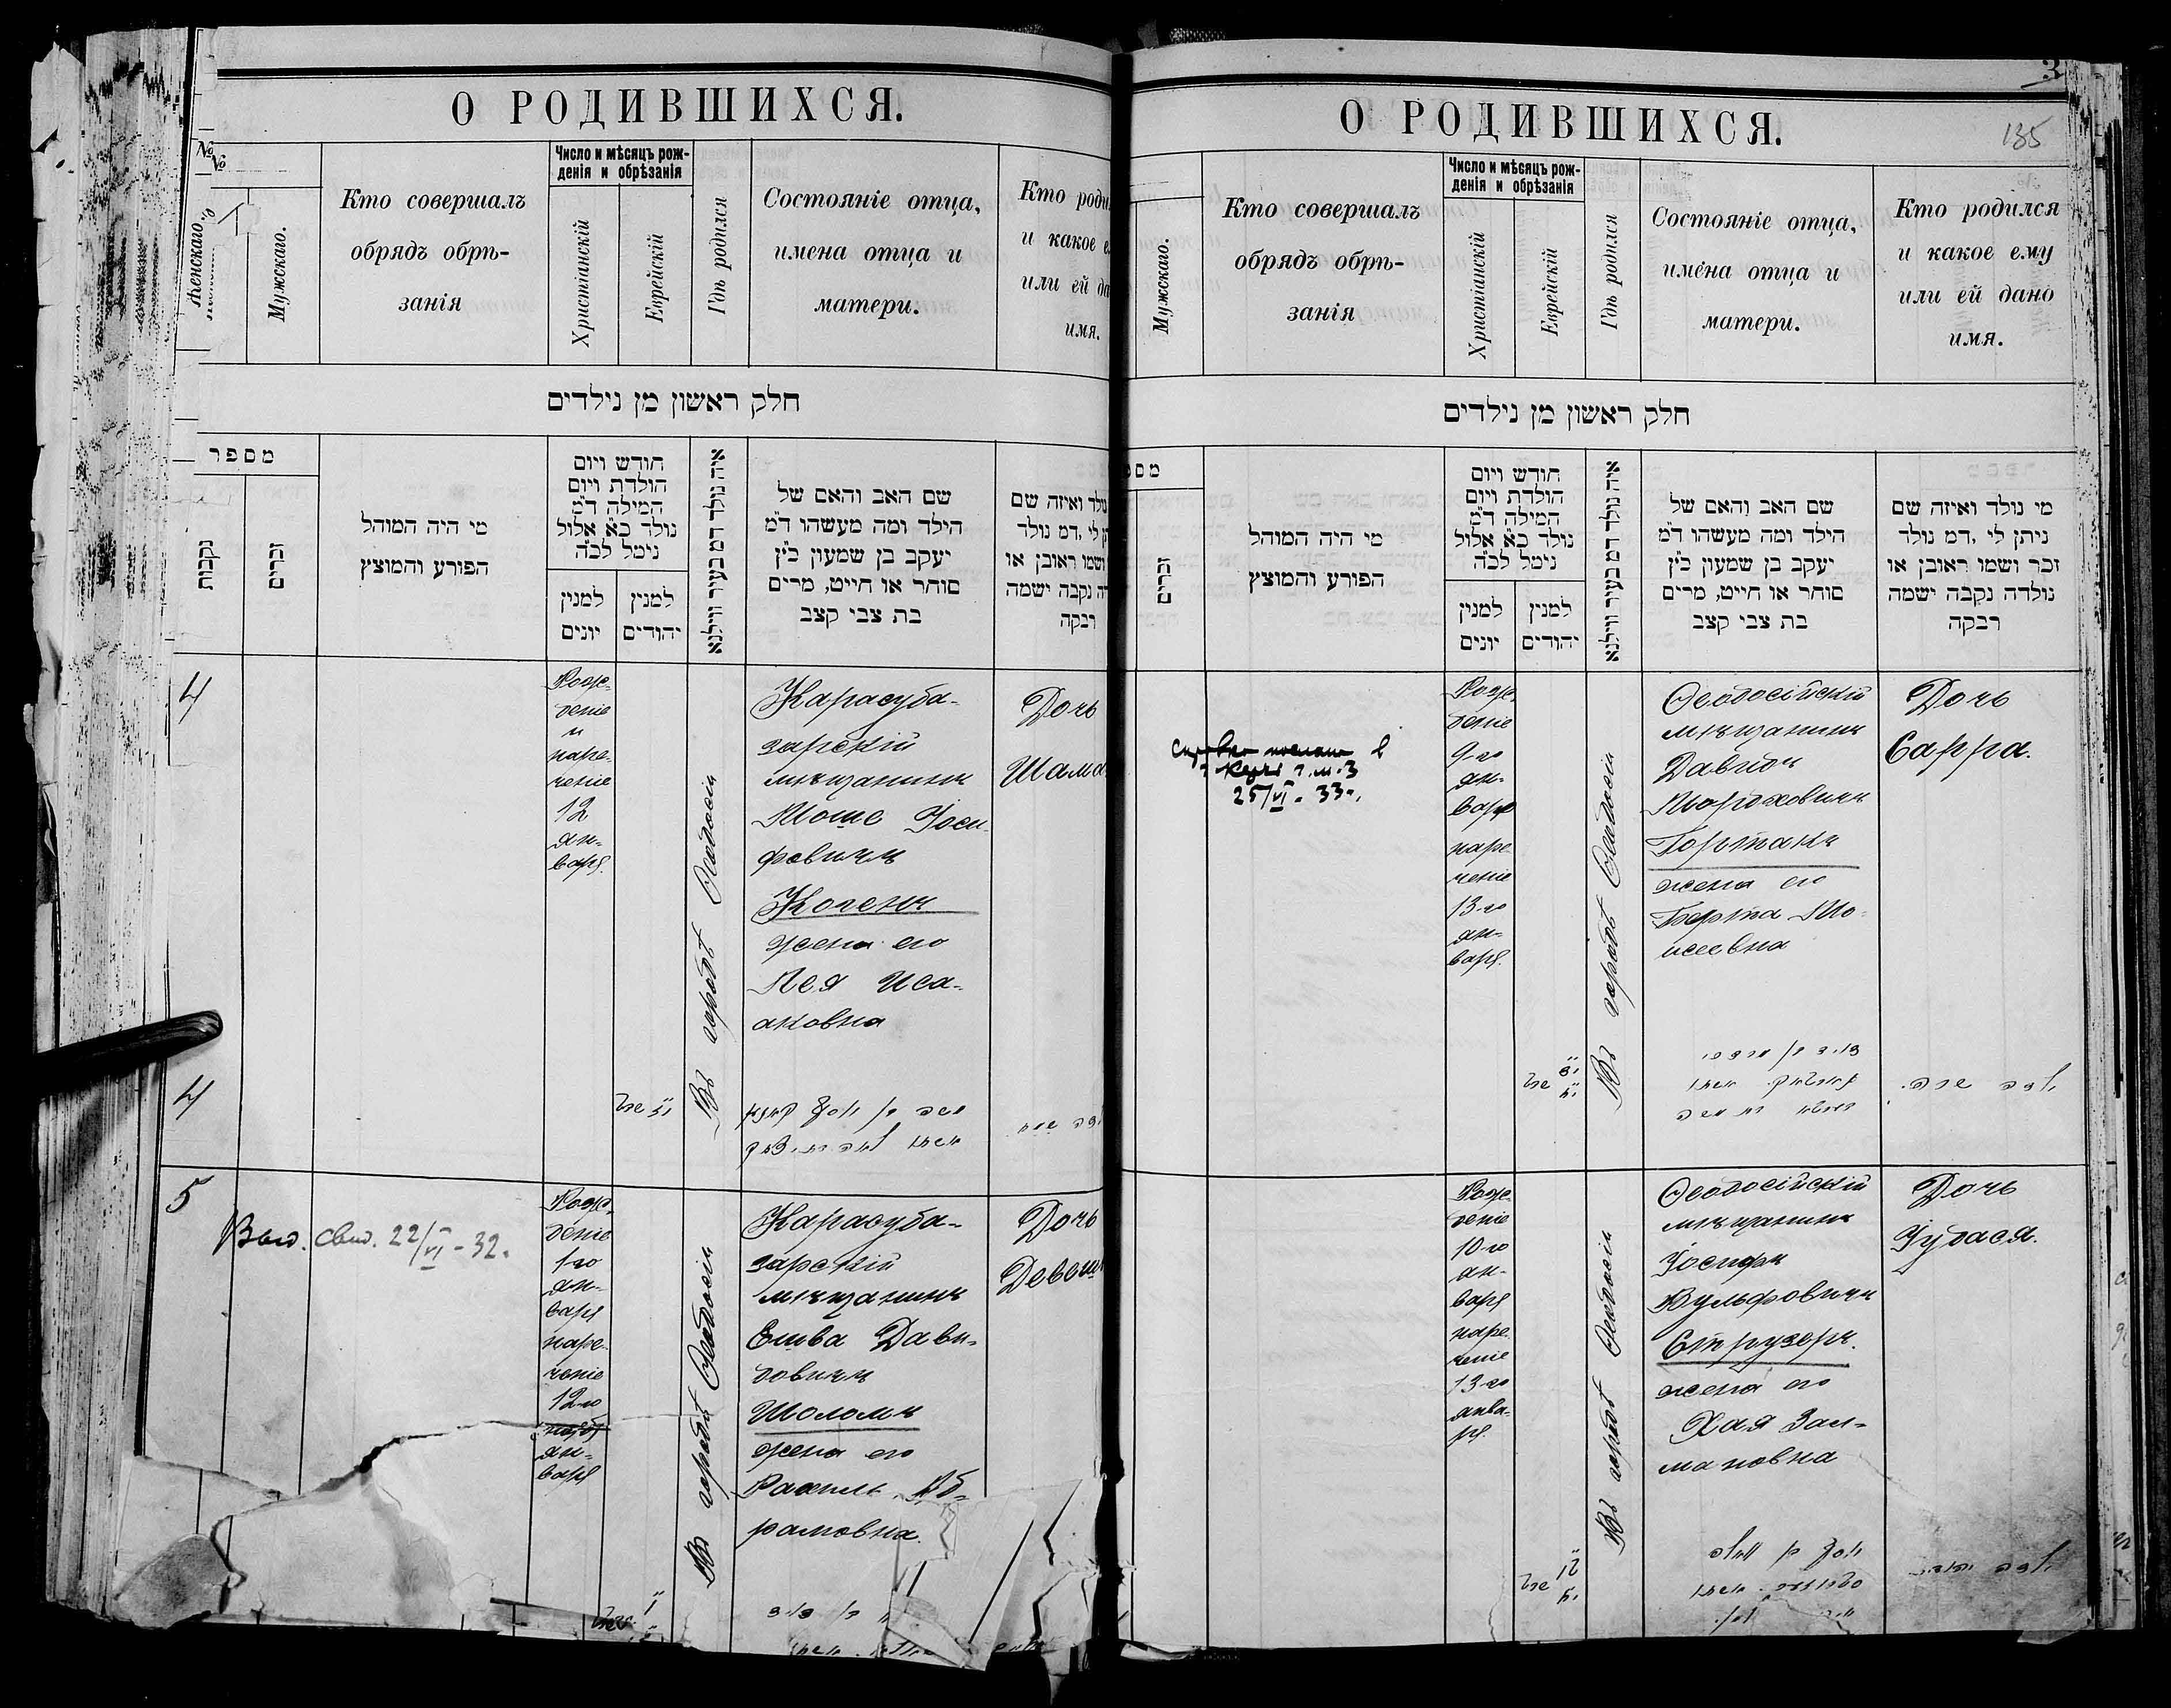 О РОДИВШИХСЯ.
№
№
Женскаго.
Мужскаго.
Кто совершалъ
обрядъ обрѣ-
занія
Число и мѣсяцъ рож-
денія и обрѣзанія
Христіанскій
Еврейскій
Гдѣ родился
Состояніе отца,
имена отца и
матери.
Кто роди
и какое е
или ей да
имя.
חלק ראשון מן נילדים
מספר
נקבות
זכרים
מי היה המוהל
הפורע והמוצץ
חודש ויום
הולדת ויום
המילה ד״מ
נולד כ״א אלול
נימל לכ״ה
למנין
יונים
למנין
יהודים
איה נולד דמ בעיר ווילנא
שם האב והאם של
הילד ומה מעשהו ד״מ
יעקב בן שמעון כ״ץ
סוחר או חייט, מרים
בת צבי קצב
נולד ואיזה שם
לי ,דמ נולד
ושמו ראובן או
נקבה ישמה
רבקה
4
Рож-
деніе
и
наре-
ченіе
12
Ян-
варя.
Въ городѣ Ѳеодосіи
Карасуба-
зарскій
мѣщанинъ
Моше Іоси-
фовичъ
Когенъ
жена его
Лея Иса-
аковна
Дочь
Шама
4
משה בן יוסף
5
Выд. свид. 22/VI - 32.
Рож-
деніе
1-го
Ян-
варя
наре-
ченіе
12-го
Ян-
варя
Въ городѣ Ѳеодосіи
Карасуба-
зарскій
мѣщанинъ
Ешва Дави-
довичъ
Шоломъ
жена его
Рахиль Аб-
рамовна.
Дочь
Девош
3
135
О РОДИВШИХСЯ.
Мужскаго.
Кто совершалъ
обрядъ обрѣ-
занія
Число и мѣсяцъ рож-
денія и обрѣзанія
Христіанскій
Еврейскій
Гдѣ родился
Состояніе отца,
имена отца и
матери.
Кто родился
и какое ему
или ей дано
имя.
חלק ראשון מן נילדים
מס
זכרים
מי היה המוהל
הפורע והמוצץ
חודש ויום
הולדת ויום
המילה ד״מ
נולד כ״א אלול
נימל לכ״ה
למנין
יונים
למנין
יהודים
איה נולד דמ בעיר ווילנא
שם האב והאם של
הילד ומה מעשהו ד״מ
יעקב בן שמעון כ״ץ
סוחר או חייט, מרים
בת צבי קצב
מי נולד ואיזה שם
ניתן לי ,דמ נולד
זכר ושמו ראובן או
נולדה נקבה ישמה
רבקה
в
25/VI. 33 г.
Рож-
деніе
9-го
Ян-
варя
наре-
ченіе
13-го
Ян-
варя.
Въ городѣ Ѳеодосіи
Ѳеодосійскій
мѣщанинъ
Давидъ
Мороховичъ
Гортанъ
жена его
Берта Мо-
исеевна
Дочь
Сарра.
ילדה שרה
Рож-
деніе
10-го
Ян-
варя
наре-
ченіе
13-го
Янва-
ря.
Въ городѣ Ѳеодосіи
Ѳеодосійскій
мѣщанинъ
Іосифъ
Вульфовичъ
Струзеръ.
жена его
Хая Зал-
мановна
Дочь
Іудася.